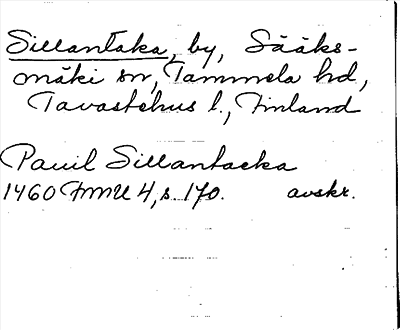 Sillantaka, by, Sääks-
mäki sn, Tammela hd,
Tavastehus l., Finland
Pauil Sillantacka
1460 FMU 4, s. 170. avskr.